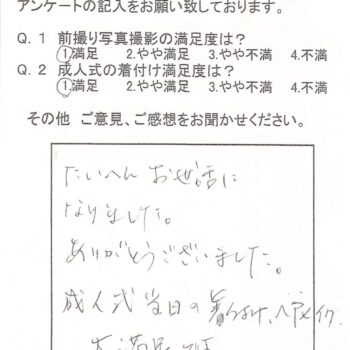 アンケートの記入をお願い致しております。
Q. 1 前撮り写真撮影の満足度は？
①満足 2.やや満足 3.やや不満 4.不満
Q. 2 成人式の着付け満足度は？
①満足 2.やや満足 3.やや不満 4.不満
その他 ご意見、ご感想をお聞かせください。
たいへん お世話に
なりました。
ありがとうございました。
成人式当日の着つけ、ヘアメイク
大満足です